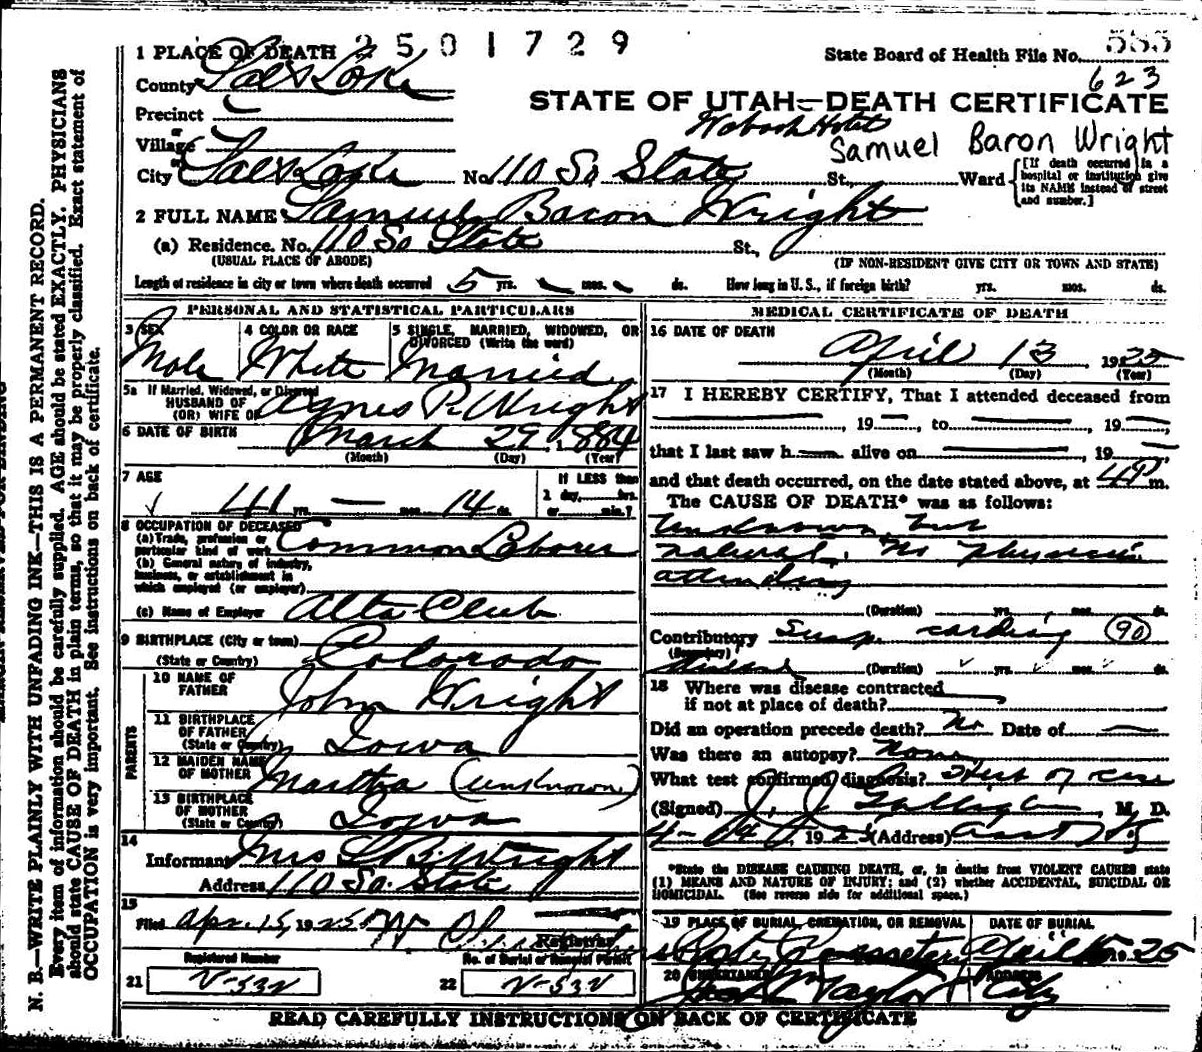 1 PLACE OF DEATH 2501729
State Board of Health File No. 585
623
County Salt Lake
STATE OF UTAH—DEATH CERTIFICATE
Precinct
or
Village
Wabash Hotel
Samuel Baron Wright
or
City Salt Lake No. 110 So State St., Ward
[If death occurred in a hospital or institution give its NAME instead of street and number.]
2 FULL NAME Samuel Baron Wright
(a) Residence. No. 110 So State St.,
(USUAL PLACE OF ABODE) (IF NON-RESIDENT GIVE CITY OR TOWN AND STATE)
Length of residence in city or town where death occurred 5 yrs. mos. ds. How long in U. S., if foreign birth? yrs. mos. ds.
PERSONAL AND STATISTICAL PARTICULARS
3 SEX 4 COLOR OR RACE 5 SINGLE, MARRIED, WIDOWED, OR
DIVORCED (Write the word)
Male White Married
5a If Married, Widowed, or Divorced
HUSBAND OF
(OR) WIFE OF Agnes P. Wright
6 DATE OF BIRTH March 29, 1884
(Month) (Day) (Year)
7 AGE If LESS than
1 day, hrs.
41 yrs. — mos. 14 ds. or min.?
8 OCCUPATION OF DECEASED
(a) Trade, profession or
particular kind of work Common Laborer
(b) General nature of industry,
business, or establishment in
which employed (or employer)
(c) Name of Employer Alta Club
9 BIRTHPLACE (City or town)
(State or Country) Colorado
PARENTS
10 NAME OF
FATHER John Wright
11 BIRTHPLACE
OF FATHER
(State or Country) Iowa
12 MAIDEN NAME
OF MOTHER Martha (unknown)
13 BIRTHPLACE
OF MOTHER
(State or Country) Iowa
14
Informant Mrs S. B. Wright
Address 110 So. State
15
Filed Apr. 15, 1925
Registrar
Registered Number No. of Burial or Removal Permit
21 V-532 22 V-532
MEDICAL CERTIFICATE OF DEATH
16 DATE OF DEATH
April 13 1925
(Month) (Day) (Year)
17 I HEREBY CERTIFY, That I attended deceased from
, 19 , to , 19 ,
that I last saw h alive on , 19
and that death occurred, on the date stated above, at 4 P m.
The CAUSE OF DEATH* was as follows:
Unknown but
natural. No physician
attending
(Duration) yrs. mos. ds.
Contributory Susp. cardiac 90
(Secondary)
(Duration) yrs. mos. ds.
18 Where was disease contracted
if not at place of death?
Did an operation precede death? No Date of
Was there an autopsy? None
What test confirmed diagnosis? Hist of case
(Signed) J. J. Galligan, M. D.
4-14, 1925 (Address)
*State the DISEASE CAUSING DEATH, or, in deaths from VIOLENT CAUSES state
(1) MEANS AND NATURE OF INJURY; and (2) whether ACCIDENTAL, SUICIDAL OR
HOMICIDAL. (See reverse side for additional space.)
19 PLACE OF BURIAL, CREMATION, OR REMOVAL DATE OF BURIAL
City Cemetery April 1925
20 UNDERTAKER ADDRESS
Taylor City
READ CAREFULLY INSTRUCTIONS ON BACK OF CERTIFICATE
N. B.—WRITE PLAINLY WITH UNFADING INK—THIS IS A PERMANENT RECORD.
Every item of information should be carefully supplied. AGE should be stated EXACTLY. PHYSICIANS
should state CAUSE OF DEATH in plain terms, so that it may be properly classified. Exact statement of
OCCUPATION is very important. See instructions on back of certificate.